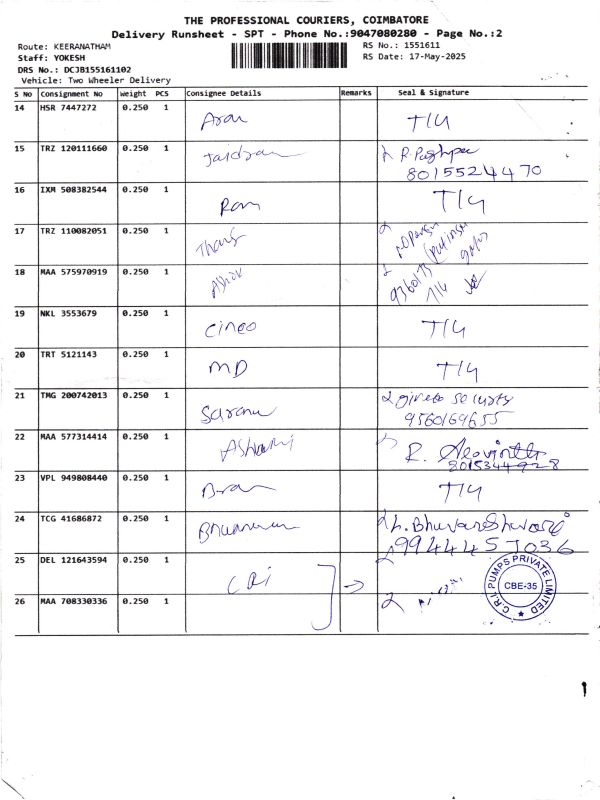 THE PROFESSIONAL COURIERS, COIMBATORE
Delivery Runsheet - SPT - Phone No.:9047080280 - Page No.:2
Route: KEERANATHAM
RS No.: 1551611
Staff: YOKESH
RS Date: 17-May-2025
DRS No.: DCJB155161102
Vehicle: Two Wheeler Delivery
S No Consignment No Weight PCS Consignee Details Remarks Seal & Signature
14 HSR 7447272 0.250 1 T/4
15 TRZ 120111660 0.250 1
8015524470
16 IXM 508382544 0.250 1 Ram T/4
17 TRZ 110082051 0.250 1 Thang
18 MAA 575970919 0.250 1 Ashok
19 NKL 3553679 0.250 1 cineo T/4
20 TRT 5121143 0.250 1 MD T/4
21 TMG 200742013 0.250 1 Saranu
9560169655
22 MAA 577314414 0.250 1 Ashwani R.
23 VPL 949808440 0.250 1 T/4
24 TCG 41686872 0.250 1 L. Bhuvaneshwari
9944457036
25 DEL 121643594 0.250 1 CRI
26 MAA 708330336 0.250 1
C.R.I. PUMPS PRIVATE LIMITED
CBE-35